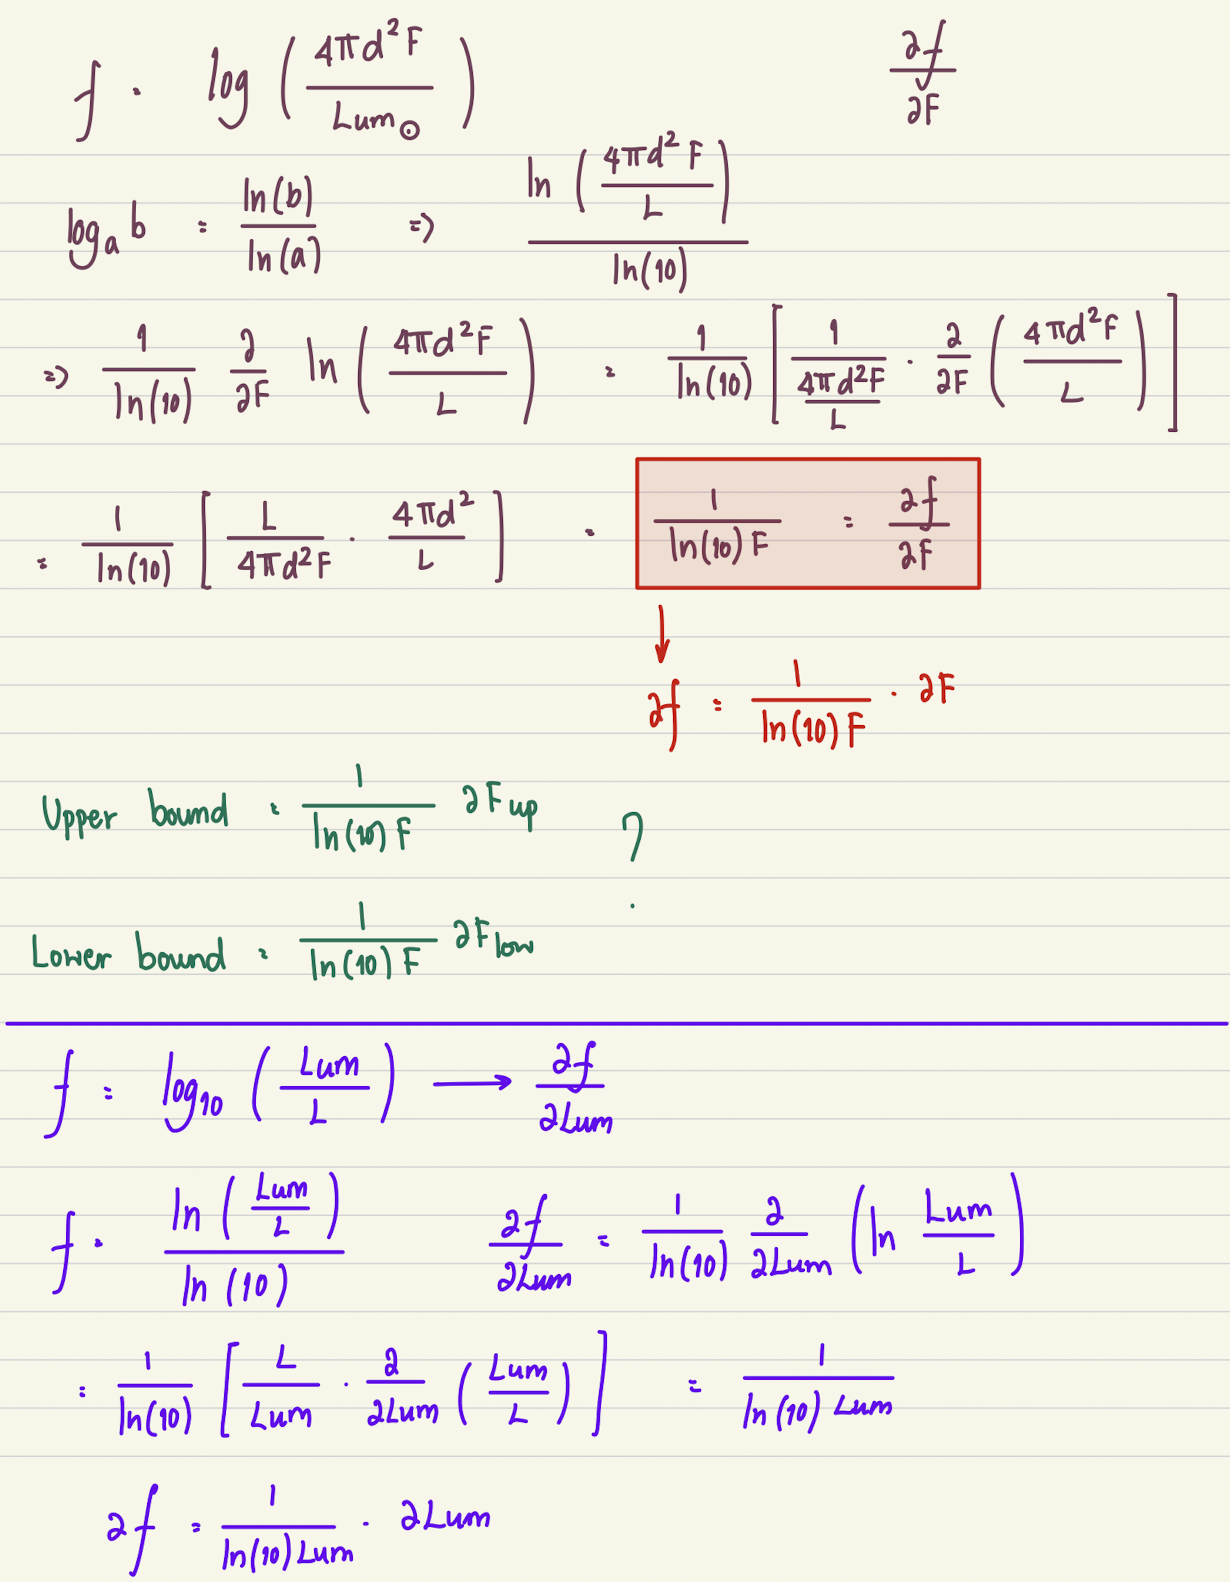 f = log ( 4πd²F / Lum⊙ )    ∂f / ∂F
logₐ b = ln(b) / ln(a) => ln ( 4πd²F / L ) / ln(10)
=> 1 / ln(10) ∂ / ∂F ln ( 4πd²F / L ) = 1 / ln(10) [ 1 / (4πd²F / L) · ∂ / ∂F ( 4πd²F / L ) ]
= 1 / ln(10) [ L / 4πd²F · 4πd² / L ] = 1 / ln(10) F = ∂f / ∂F
↓
∂f = 1 / ln(10) F · ∂F
Upper bound = 1 / ln(10) F ∂F up ?
Lower bound = 1 / ln(10) F ∂F low
f = log₁₀ ( Lum / L ) → ∂f / ∂Lum
f = ln ( Lum / L ) / ln (10)    ∂f / ∂Lum = 1 / ln(10) ∂ / ∂Lum ( ln Lum / L )
= 1 / ln(10) [ L / Lum · ∂ / ∂Lum ( Lum / L ) ] = 1 / ln(10) Lum
∂f = 1 / ln(10) Lum · ∂Lum